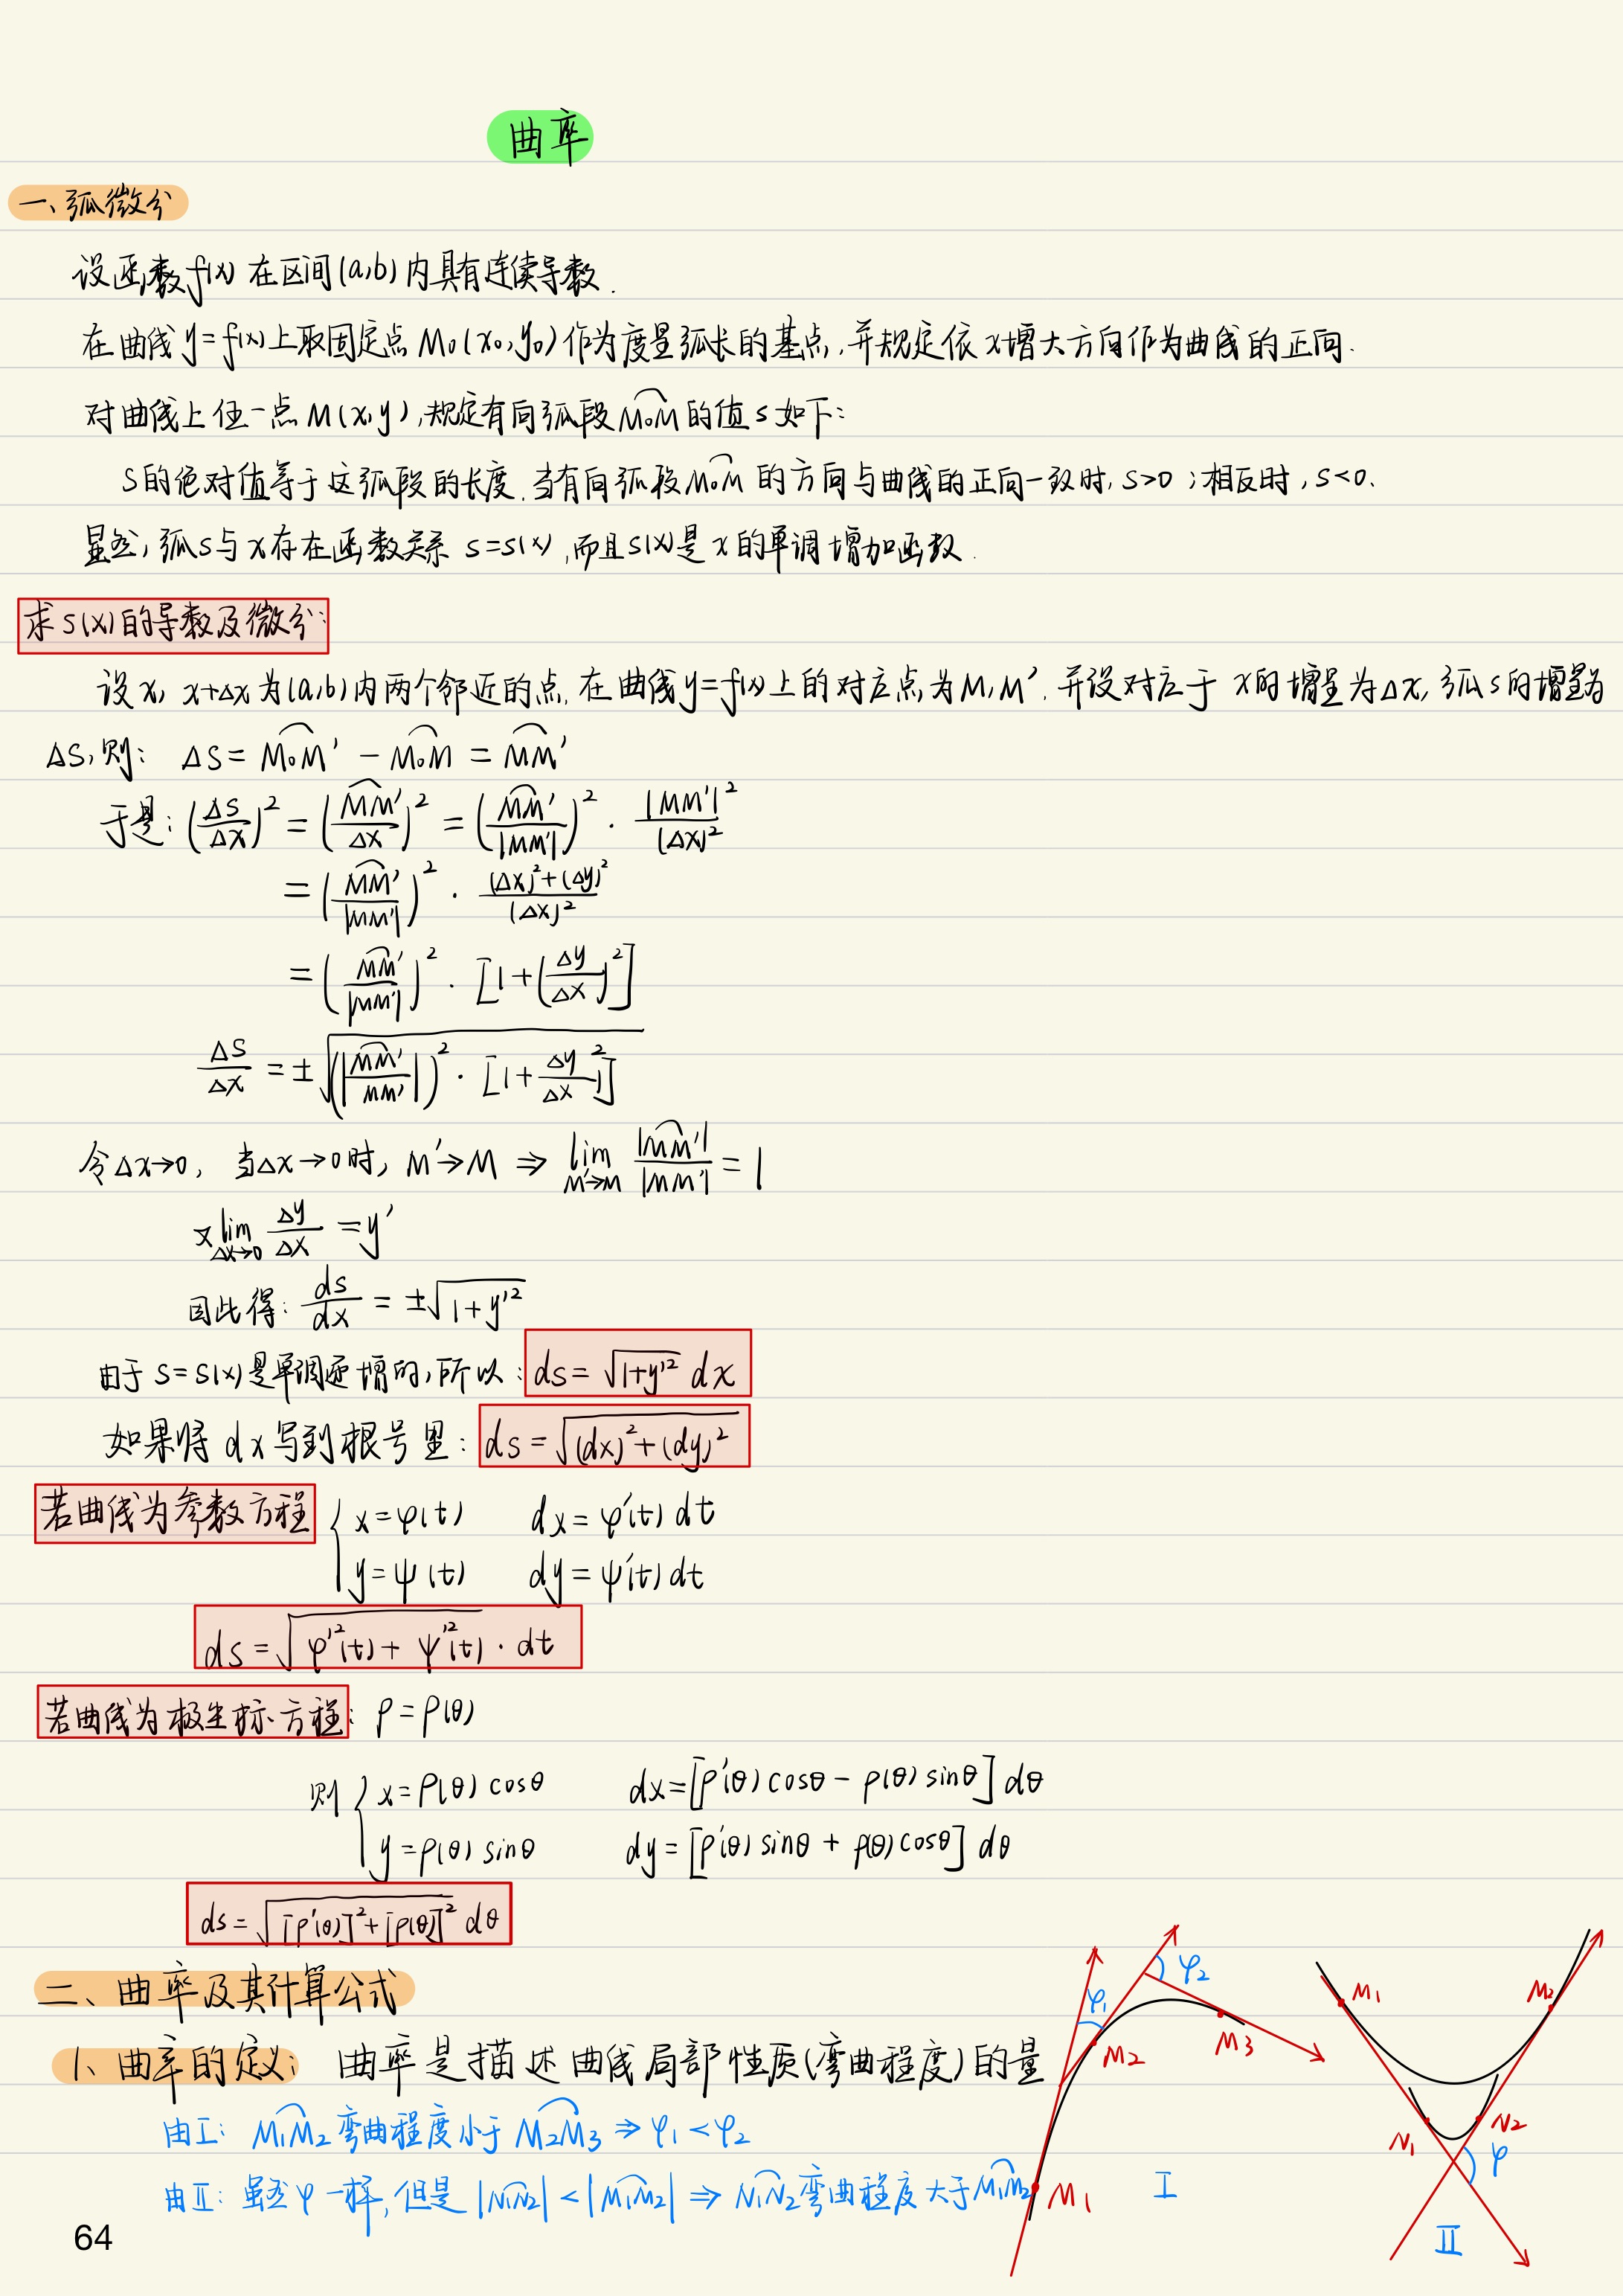 曲率
一、弧微分
设函数f(x)在区间(a,b)内具有连续导数.
在曲线y=f(x)上取固定点M₀(x₀,y₀)作为度量弧长的基点,并规定依x增大方向作为曲线的正向.
对曲线上任一点M(x,y),规定有向弧段M₀M⌒的值s如下:
S的绝对值等于这弧段的长度.当有向弧段M₀M⌒的方向与曲线的正向一致时,s>0;相反时,s<0.
显然,弧s与x存在函数关系 s=s(x),而且s(x)是x的单调增加函数.
求s(x)的导数及微分:
设x, x+Δx为(a,b)内两个邻近的点,在曲线y=f(x)上的对应点为M,M′.并设对应于x的增量为Δx,弧s的增量为
ΔS,则: ΔS=M₀M′⌒ - M₀M⌒ = MM′⌒
于是: (ΔS/Δx)² = (MM′⌒/Δx)² = (MM′⌒/|MM′|)² · |MM′|²/(Δx)²
= (MM′⌒/|MM′|)² · ((Δx)²+(Δy)²)/(Δx)²
= (MM′⌒/|MM′|)² · [1+(Δy/Δx)²]
ΔS/Δx = ±√((|MM′⌒/MM′|)² · [1+Δy/Δx)²])
令Δx→0, 当Δx→0时, M′→M ⇒ lim M′→M |MM′⌒|/|MM′| = 1
又lim Δx→0 Δy/Δx = y′
因此得: ds/dx = ±√(1+y′²)
由于s=s(x)是单调递增的,所以: ds=√(1+y′²) dx
如果将dx写到根号里: ds=√((dx)²+(dy)²)
若曲线为参数方程 { x=φ(t) dx=φ′(t)dt
y=ψ(t) dy=ψ′(t)dt
ds=√(φ′²(t)+ψ′²(t)) · dt
若曲线为极坐标方程: ρ=ρ(θ)
则 { x=ρ(θ)cosθ dx=[ρ′(θ)cosθ-ρ(θ)sinθ]dθ
y=ρ(θ)sinθ dy=[ρ′(θ)sinθ+ρ(θ)cosθ]dθ
ds=√([ρ′(θ)]²+[ρ(θ)]²) dθ
二、曲率及其计算公式
1、曲率的定义: 曲率是描述曲线局部性质(弯曲程度)的量
由I: M₁M₂⌒弯曲程度小于M₂M₃⌒ ⇒ φ₁<φ₂
由II: 虽然φ一样,但是|N₁N₂⌒|<|M₁M₂⌒| ⇒ N₁N₂⌒弯曲程度大于M₁M₂⌒
φ₁
φ₂
M₂
M₃
M₁
I
M₁
M₂
N₁
N₂
φ
II
64